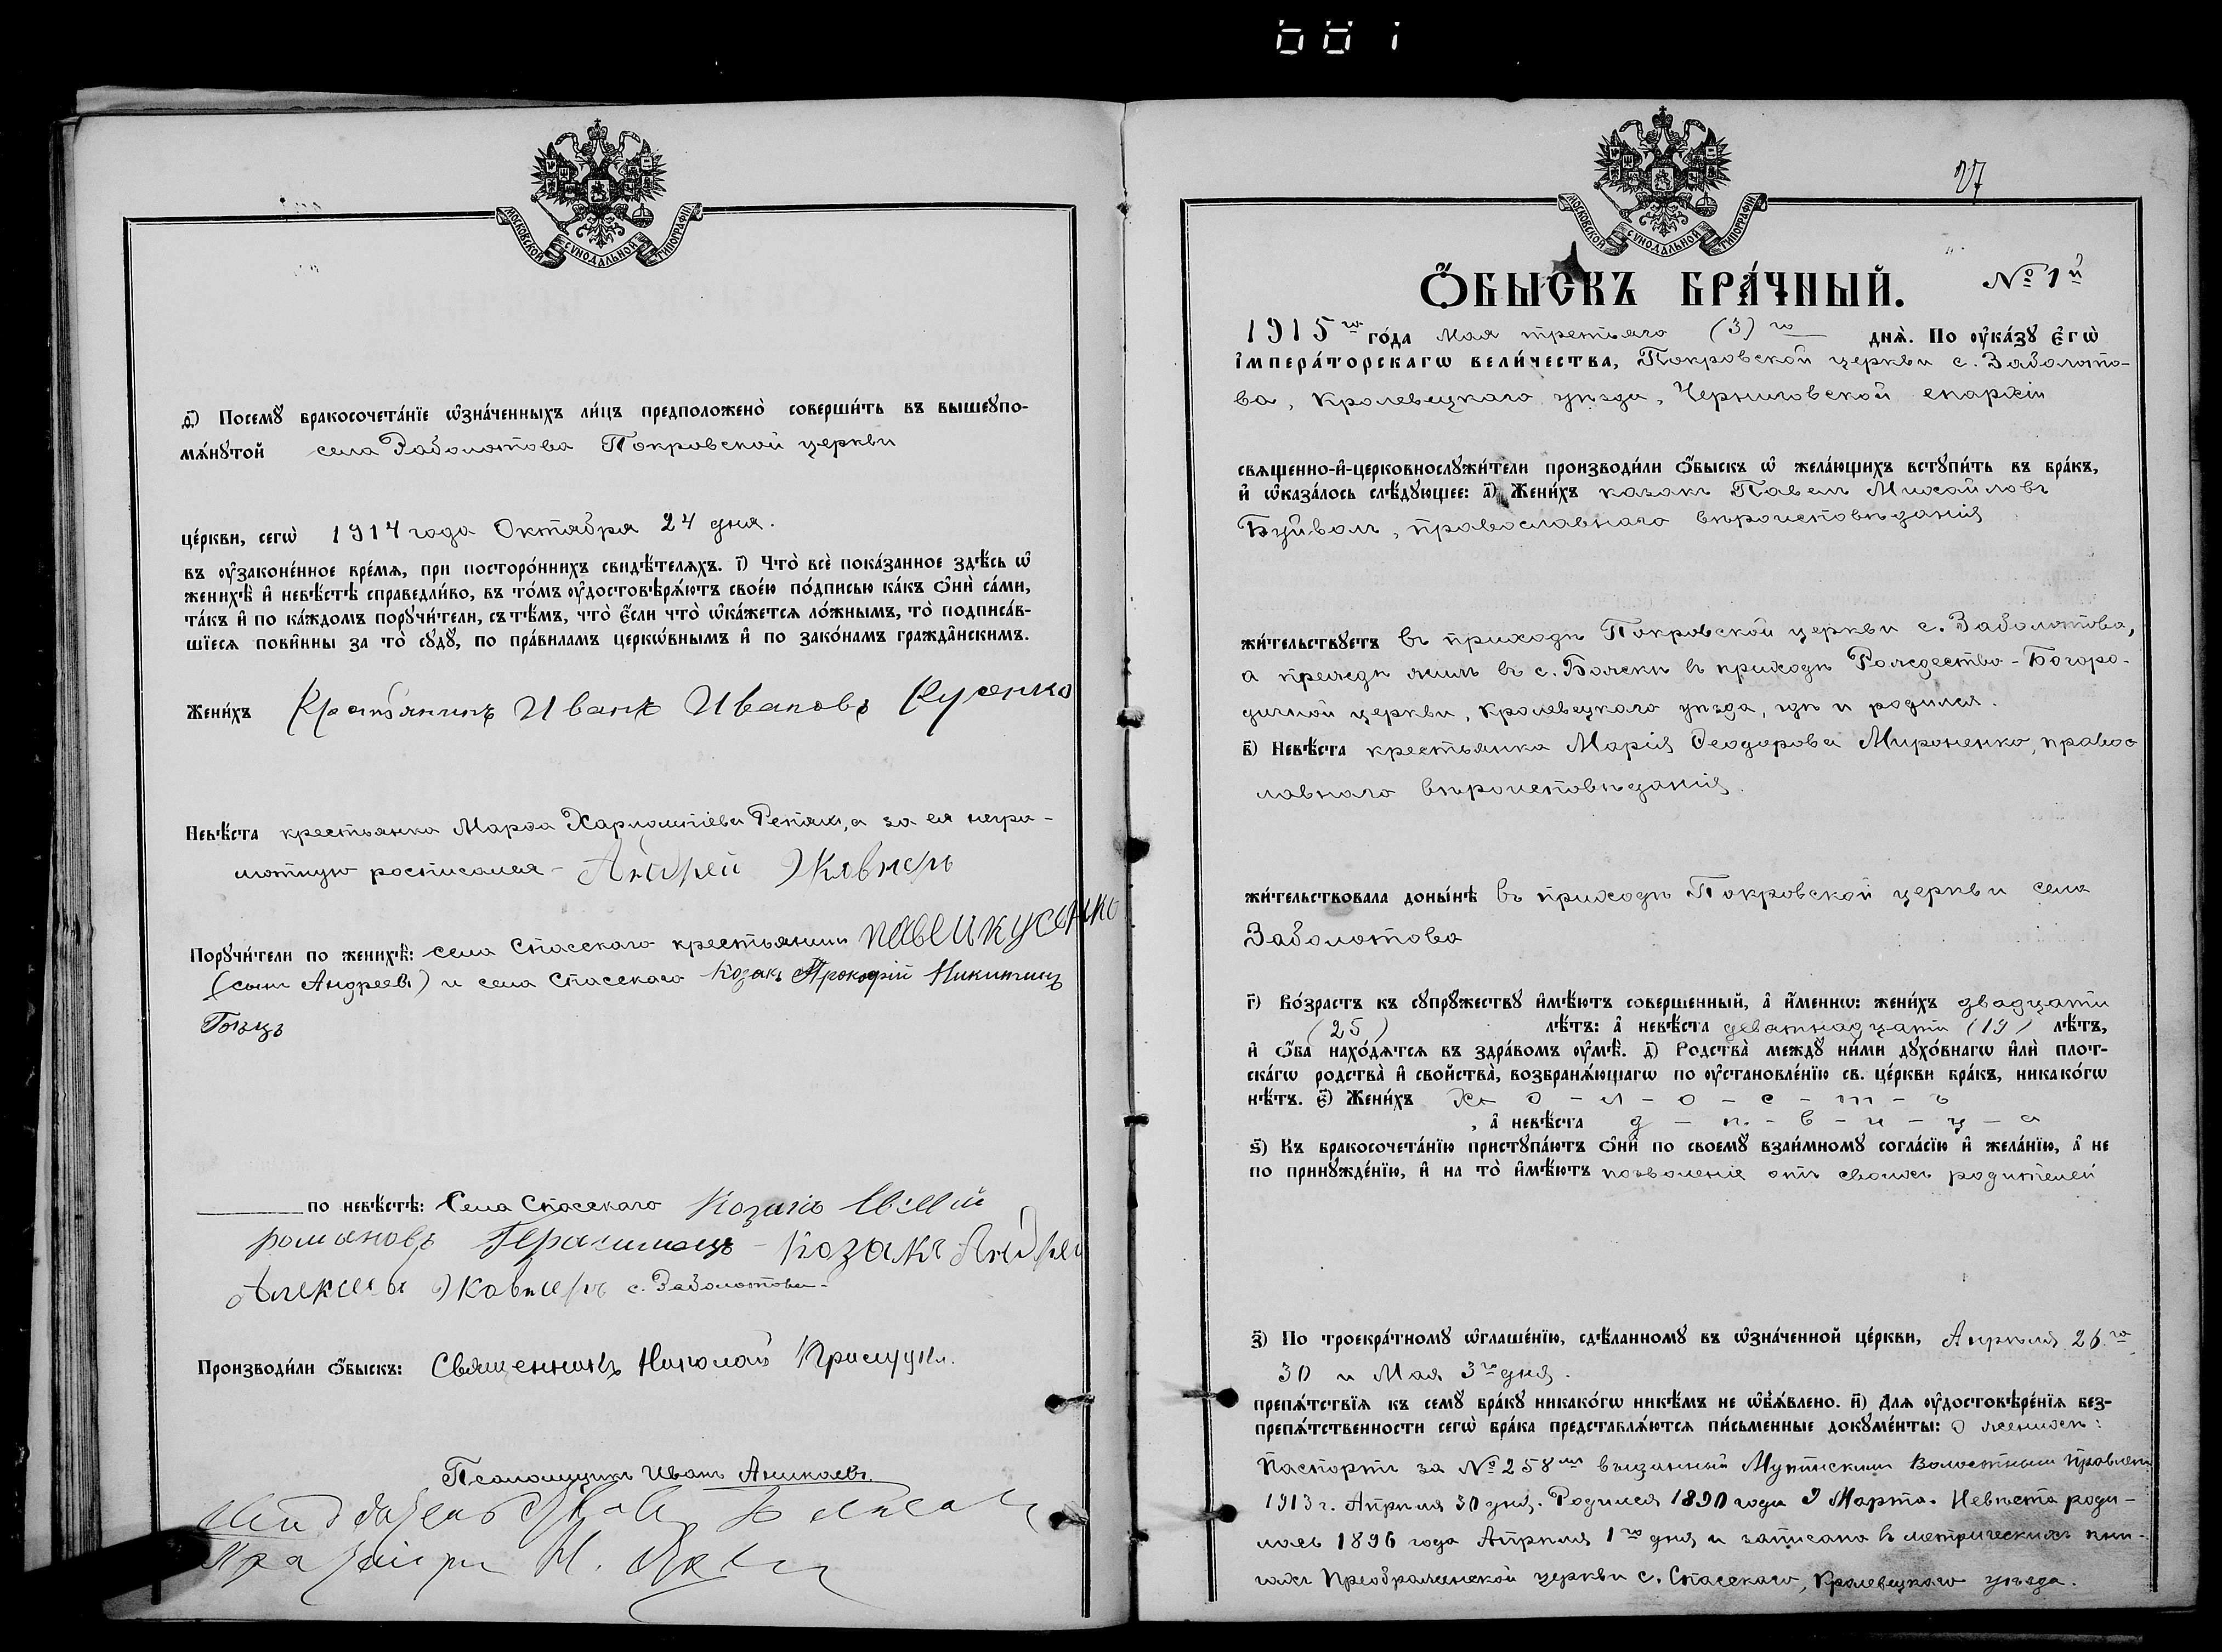 001
МОСКОВСКОЙ СѴНОДАЛЬНОЙ ТИПОГРАФІИ
ѳ҃) Посемꙋ̀ бракосочета́нїе ѡ҆зна́ченныхъ ли́цъ предположено̀ соверши́ть въ вышеꙋпо-
мѧ́нꙋтой села Заболотова Покровской церкви
це́ркви, сегѡ̀ 1914 года Октября 24 дня.
въ ᲂу҆законе́нное вре́мѧ, при посторо́ннихъ свидѣ́телѧхъ. і҃) Что̀ всѐ пока́занное здѣ́сь ѡ҆
женихѣ̀ и҆ невѣ́стѣ справедли́во, въ то́мъ ᲂу҆достовѣрѧ́ютъ свое́ю по́дписью ка́къ ѻ҆нѝ са́ми,
та́къ и҆ по ка́ждомъ порꙋчи́тели, съ тѣ́мъ, что̀ є҆́сли что̀ ѡ҆ка́жетсѧ ло́жнымъ, то̀ подписа́в-
шїесѧ пови́нны за то̀ сꙋдꙋ̀, по пра́виламъ церкѡ́внымъ и҆ по зако́намъ гражда́нскимъ.
Жени́хъ Крестьянинъ Иванъ Ивановъ Кусенко
Невѣ́ста крестьянка Марѳа Харлампіева Репях, а за ея негра-
мотную росписался - Андрей Жовнеръ
Порꙋчи́тели по женихѣ̀: села Спасскаго крестьянин Павел Кусенко
(сынъ Андреевъ) и села Спасскаго Козакъ Прокофій Никитинъ
по невѣ́стѣ: Села Спасскаго Козакъ
Романовъ Козакъ Андрей
Алексеевъ Жовнеръ с. Заболотова
Производи́ли ѻ҆́быскъ: Священникъ Николай
Псаломщикъ Иванъ
27
МОСКОВСКОЙ СѴНОДАЛЬНОЙ ТИПОГРАФІИ
Ѻ҆́БЫСКЪ БРА́ЧНЫЙ. № 1й
1915го го́да Мая третьяго (3)го днѧ̀. По ᲂу҆ка́зꙋ Є҆гѡ̀
І҆мпера́торскагѡ вели́чества, Покровской церкви с. Заболото-
ва, Кролевецкаго уѣзда, Черниговской епархіи
свѧщенно-и҆-церковнослꙋжи́тели производи́ли ѻ҆́быскъ ѡ҆ жела́ющихъ встꙋпи́ть въ бра́къ,
и҆ ѡ҆каза́лось слѣ́дꙋющее: а҃) Жени́хъ казакъ Павелъ Михайловъ
Буйволъ, православнаго вѣроисповѣданія
жи́тельствꙋетъ въ приходѣ Покровской церкви с. Заболотова,
а прежде жилъ въ с. Божкѣ въ приходѣ Рождество-Богоро-
дичной церкви, Кролевецкаго уѣзда, гдѣ и родился.
в҃) Невѣ́ста крестьянка Марія Ѳеодорова Мироненко, правос
лавнаго вѣроисповѣданія.
жи́тельствовала доны́нѣ въ приходѣ Покровской церкви села
Заболотова
г҃) Во́зрастъ къ сꙋпрꙋ́жествꙋ и҆мѣ́ютъ соверше́нный, а҆ и҆́меннѡ: жени́хъ двадцати
(25) лѣ́тъ: а҆ невѣ́ста девятнадцати (19) лѣ́тъ,
и҆ ѻ҆́ба нахо́дѧтсѧ въ здра́вомъ ᲂу҆мѣ̀. д҃) Родства̀ междꙋ̀ ни́ми дꙋхо́внагѡ и҆лѝ плот-
ска́гѡ родства̀ и҆ свойства̀, возбранѧ́ющагѡ по ᲂу҆становле́нїю св. це́ркви бра́къ, никако́гѡ
нѣ́тъ. є҃) Жени́хъ Х - о - л - о - с - т - ъ
, а҆ невѣ́ста д - ѣ - в - и - ц - а
ѕ҃) Къ бракосочета́нїю пристꙋпа́ютъ ѻ҆нѝ по своемꙋ̀ взаи́мномꙋ согла́сїю и҆ жела́нїю, а҆ не
по принꙋжде́нїю, и҆ на то̀ и҆мѣ́ютъ позволеніе отъ своихъ родителей
з҃) По троекра́тномꙋ ѡ҆глаше́нїю, сдѣ́ланномꙋ въ ѡ҆зна́ченной це́ркви, Апрѣля 26го
30 и Мая 3го дня.
препѧ́тствїѧ къ семꙋ̀ бра́кꙋ никако́гѡ никѣ́мъ не ѡ҆бъѧ́влено. и҃) Для ᲂу҆достовѣре́нїѧ без-
препѧ́тственности сегѡ̀ бра́ка представлѧ́ютсѧ пи́сьменные докꙋме́нты: о женихѣ:
Паспортъ за № 258мъ выданный Мутинскимъ Волостнымъ Правлен
1913 г. Апрѣля 30 дня. Родился 1890 года 9 Марта. Невѣста роди-
лась 1896 года Апрѣля 1го дня и записана в метрическихъ кни-
гахъ Преображенской церкви с. Спасскаго, Кролевецкаго уѣзда.